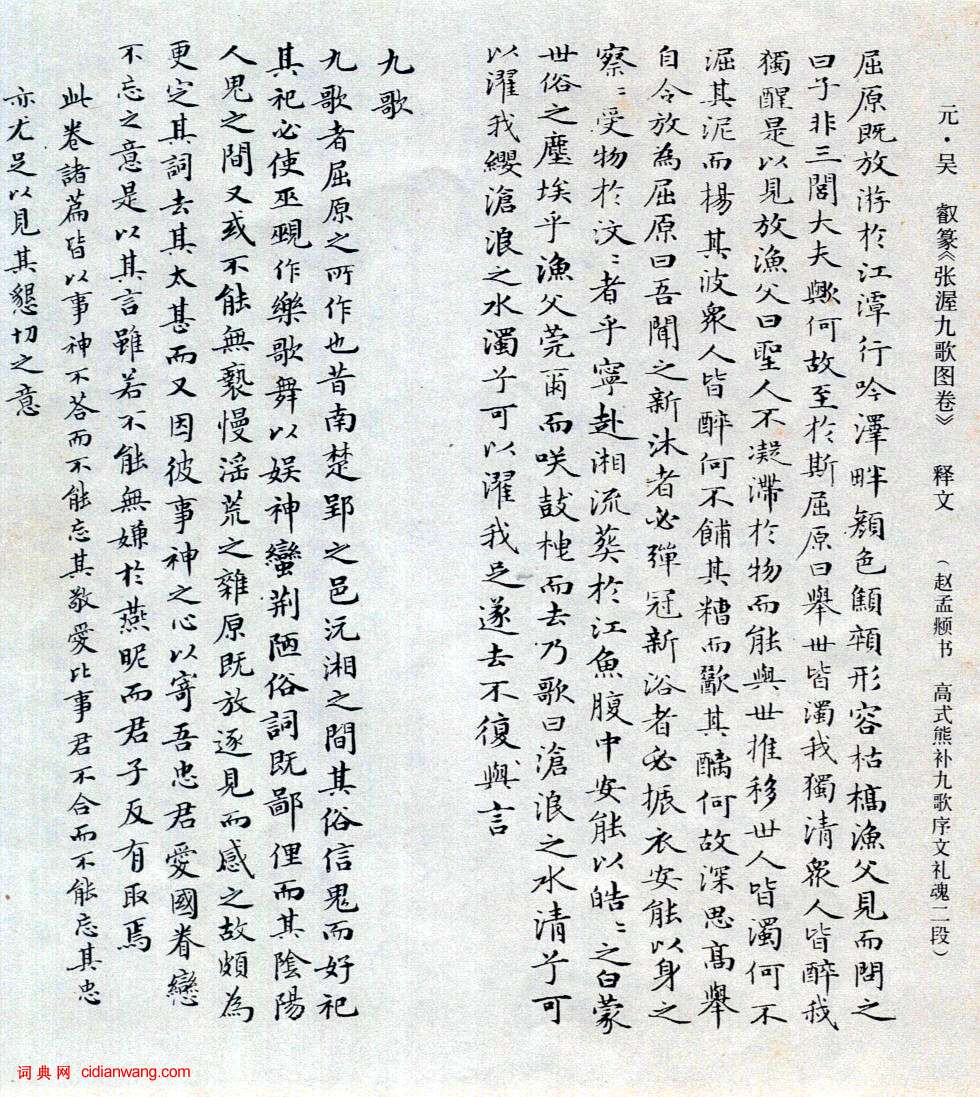 元·吴 叡篆《张渥九歌图卷》 释文 （赵孟頫书 高式熊补九歌序文礼魂二段）
屈原既放游於江潭行吟澤畔顏色顦顇形容枯槁漁父見而問之
曰子非三閭大夫歟何故至於斯屈原曰舉世皆濁我獨清衆人皆醉我
獨醒是以見放漁父曰聖人不凝滯於物而能與世推移世人皆濁何不
淈其泥而揚其波衆人皆醉何不餔其糟而歠其醨何故深思高舉
自令放為屈原曰吾聞之新沐者必彈冠新浴者必振衣安能以身之
察：受物於汶：者乎寧赴湘流葬於江魚腹中安能以皓：之白蒙
世俗之塵埃乎漁父莞爾而咲鼓枻而去乃歌曰滄浪之水清兮可
以濯我纓滄浪之水濁兮可以濯我足遂去不復與言
九歌
九歌者屈原之所作也昔南楚郢之邑沅湘之間其俗信鬼而好祀
其祀必使巫覡作樂歌舞以娱神蠻荆陋俗詞既鄙俚而其陰陽
人鬼之間又或不能無褻慢淫荒之雜原既放逐見而感之故頗為
更定其詞去其太甚而又因彼事神之心以寄吾忠君愛國眷戀
不忘之意是以其言雖若不能無嫌於燕昵而君子反有取焉
此卷諸篇皆以事神不答而不能忘其敬愛比事君不合而不能忘其忠
亦尤足以見其懇切之意
词典网 cidianwang.com